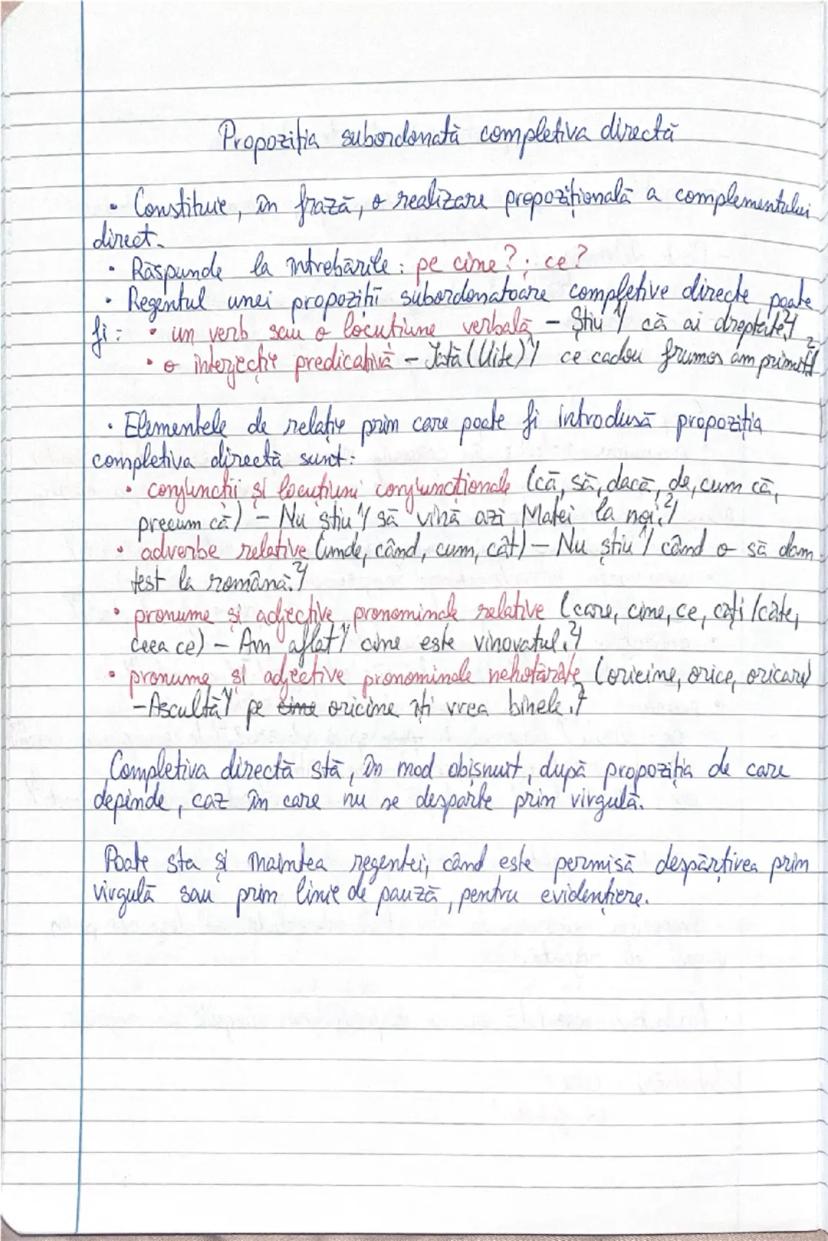 Propoziția subordonată completiva directă
• Constituie, în frază, o realizare propozițională a complementului
direct.
• Răspunde la întrebările: pe cine?; ce?
• Regentul unei propoziții subordonatoare completive directe poate
fi: • un verb sau o locuțiune verbală – Știu ¹/ că ai dreptate.²/
• o interjecție predicativă – Iată (Uite) ¹/ ce cadou frumos am primit!²/
• Elementele de relație prim care poate fi introdusă propoziția
completiva directă sunt:
• conjuncții și locuțiuni conjuncționale (că, să, dacă, de, cum că,
precum că) – Nu știu ¹/ să vină azi Matei la noi.²/
• adverbe relative (unde, când, cum, cât) – Nu știu ¹/ când o să dam
test la română.²/
• pronume și adjective pronominale relative (care, cine, ce, câți/câte,
ceea ce) – Am aflat ¹/ cine este vinovatul.²/
• pronume și adjective pronominale nehotărâte (oricine, orice, oricare)
– Ascultă ¹/ pe cine oricine îți vrea binele.²/
Completiva directă stă, în mod obișnuit, după propoziția de care
depinde, caz în care nu se desparte prim virgulă.
Poate sta și înaintea regentei, când este permisă despărțirea prim
virgulă sau prim linie de pauză, pentru evidențiere.